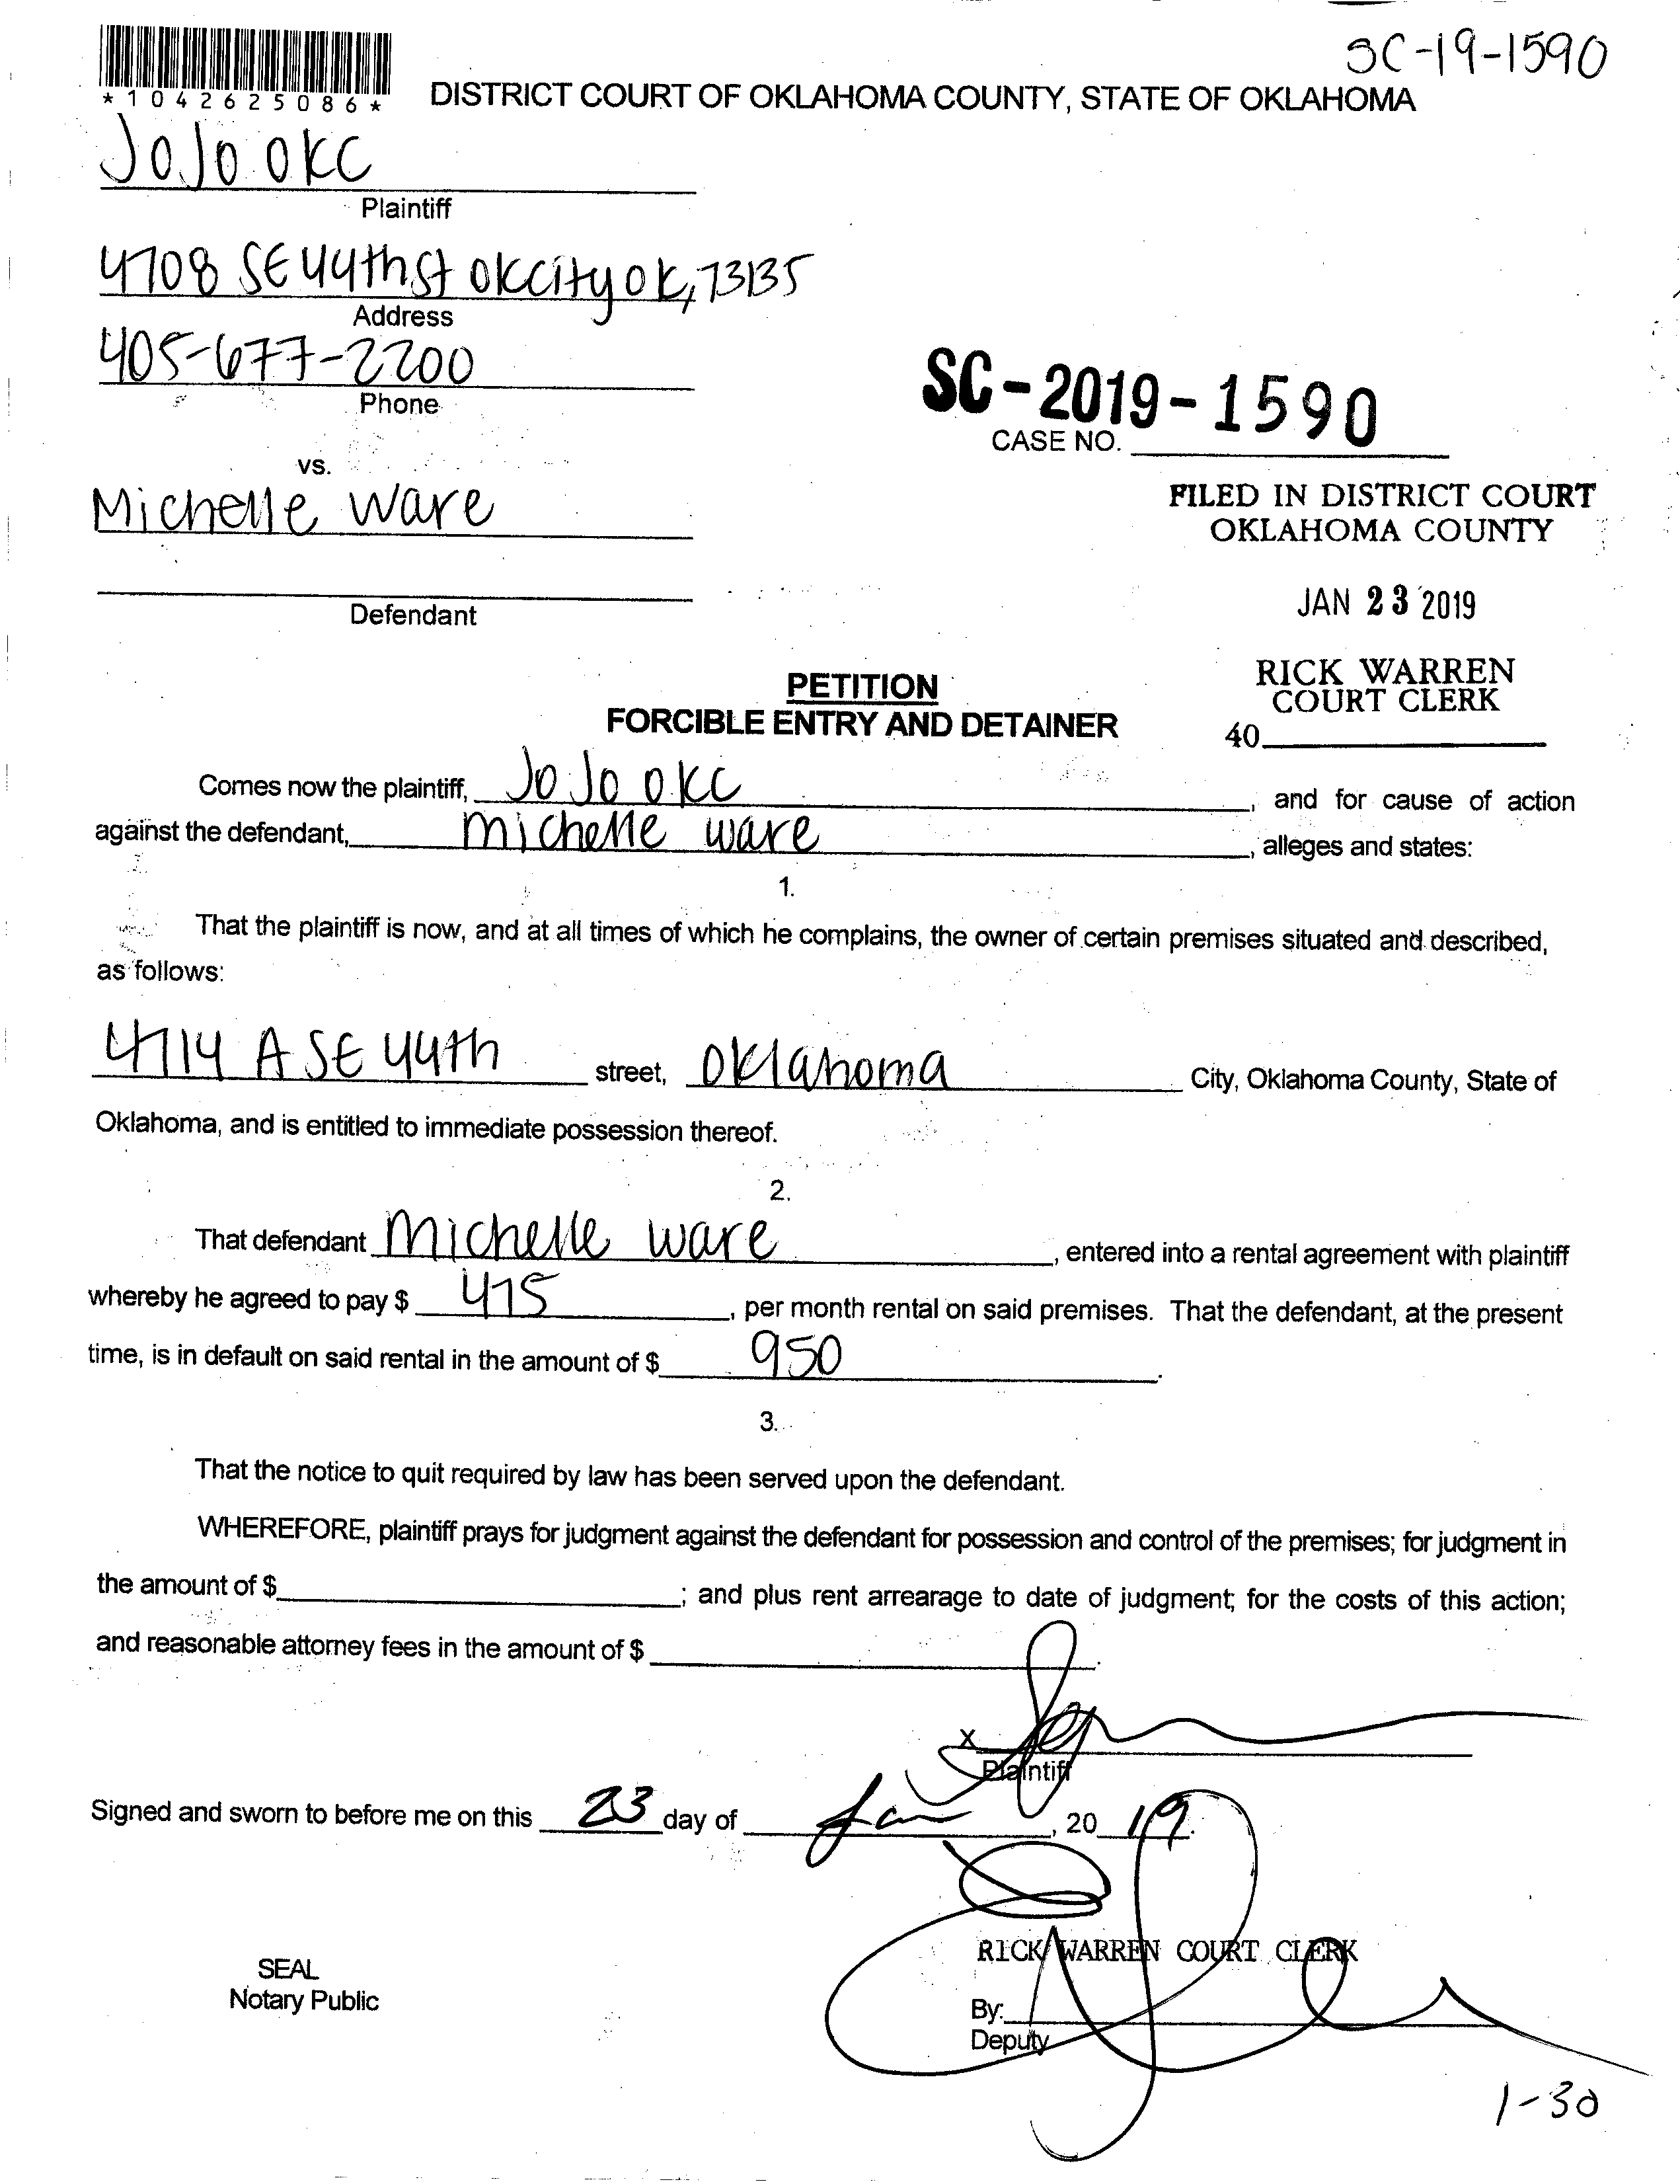 SC-19-1590
*1042625086*
DISTRICT COURT OF OKLAHOMA COUNTY, STATE OF OKLAHOMA
JoJo OKC
Plaintiff
4708 SE 44th St OKCity OK, 73135
Address
405-677-2200
Phone
SC-2019-1590
CASE NO.
vs.
Michelle Ware
FILED IN DISTRICT COURT
OKLAHOMA COUNTY
Defendant
JAN 23 2019
RICK WARREN
COURT CLERK
40
PETITION
FORCIBLE ENTRY AND DETAINER
Comes now the plaintiff, JoJo OKC, and for cause of action
against the defendant, Michelle Ware, alleges and states:
1.
That the plaintiff is now, and at all times of which he complains, the owner of certain premises situated and described,
as follows:
4714 A SE 44th street, Oklahoma City, Oklahoma County, State of
Oklahoma, and is entitled to immediate possession thereof.
2.
That defendant Michelle Ware, entered into a rental agreement with plaintiff
whereby he agreed to pay $ 475, per month rental on said premises. That the defendant, at the present
time, is in default on said rental in the amount of $ 950.
3.
That the notice to quit required by law has been served upon the defendant.
WHEREFORE, plaintiff prays for judgment against the defendant for possession and control of the premises; for judgment in
the amount of $ ; and plus rent arrearage to date of judgment; for the costs of this action;
and reasonable attorney fees in the amount of $ .
X
Plaintiff
Signed and sworn to before me on this 23 day of Jan, 20 19.
RICK WARREN COURT CLERK
SEAL
Notary Public
By:
Deputy
1-30